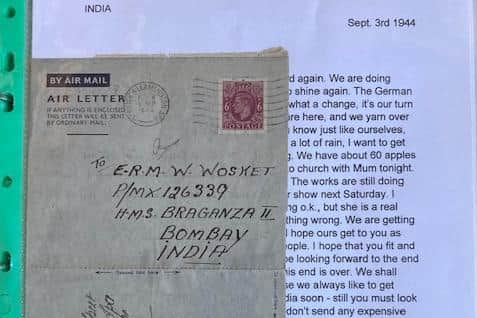 INDIA
Sept. 3rd 1944
BY AIR MAIL
AIR LETTER
IF ANYTHING IS ENCLOSED
THIS LETTER WILL BE SENT
BY ORDINARY MAIL.
6 6
POSTAGE
To E.R.M. W. WOSKET
P/MX 126339
H.M.S. BRAGANZA II
BOMBAY
INDIA
rd again. We are doing
o shine again. The German
what a change, it's our turn
re here, and we yarn over
know just like ourselves,
a lot of rain, I want to get
g. We have about 60 apples
o church with Mum tonight.
The works are still doing
r show next Saturday. I
ng o.k., but she is a real
thing wrong. We are getting
I hope ours get to you as
ople. I hope that you fit and
e looking forward to the end
is end is over. We shall
se we always like to get
dia soon - still you must look
don't send any expensive